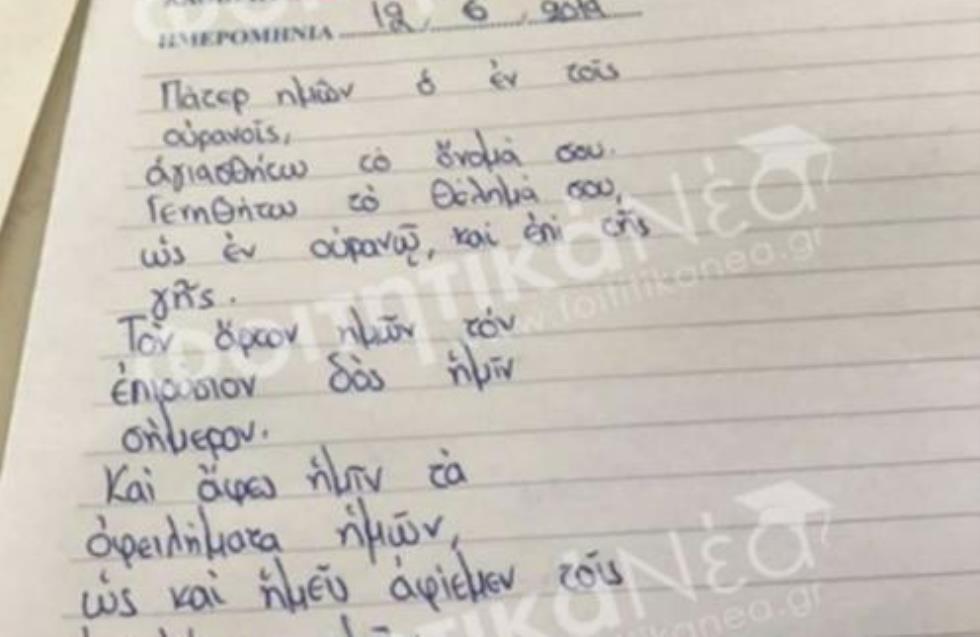 ΗΜΕΡΟΜΗΝΙΑ 12/ 6 / 2019
Πάτερ ημῶν ὁ ἐν τοῖς
οὐρανοῖς,
ἁγιασθήτω τὸ ὄνομά σου.
Γενηθήτω τὸ θέλημά σου,
ὡς ἐν οὐρανῷ, καὶ ἐπὶ τῆς
γῆς.
Τὸν ἄρτον ημῶν τόν
ἐπιούσιον δὸς ἡμῖν
σήμερον.
Καὶ ἄφες ἡμῖν τὰ
ὀφειλήματα ἡμῶν,
ὡς καὶ ἡμεῖς ἀφίεμεν τοῖς
φοιτητικάΝέα
www.foititikanea.gr